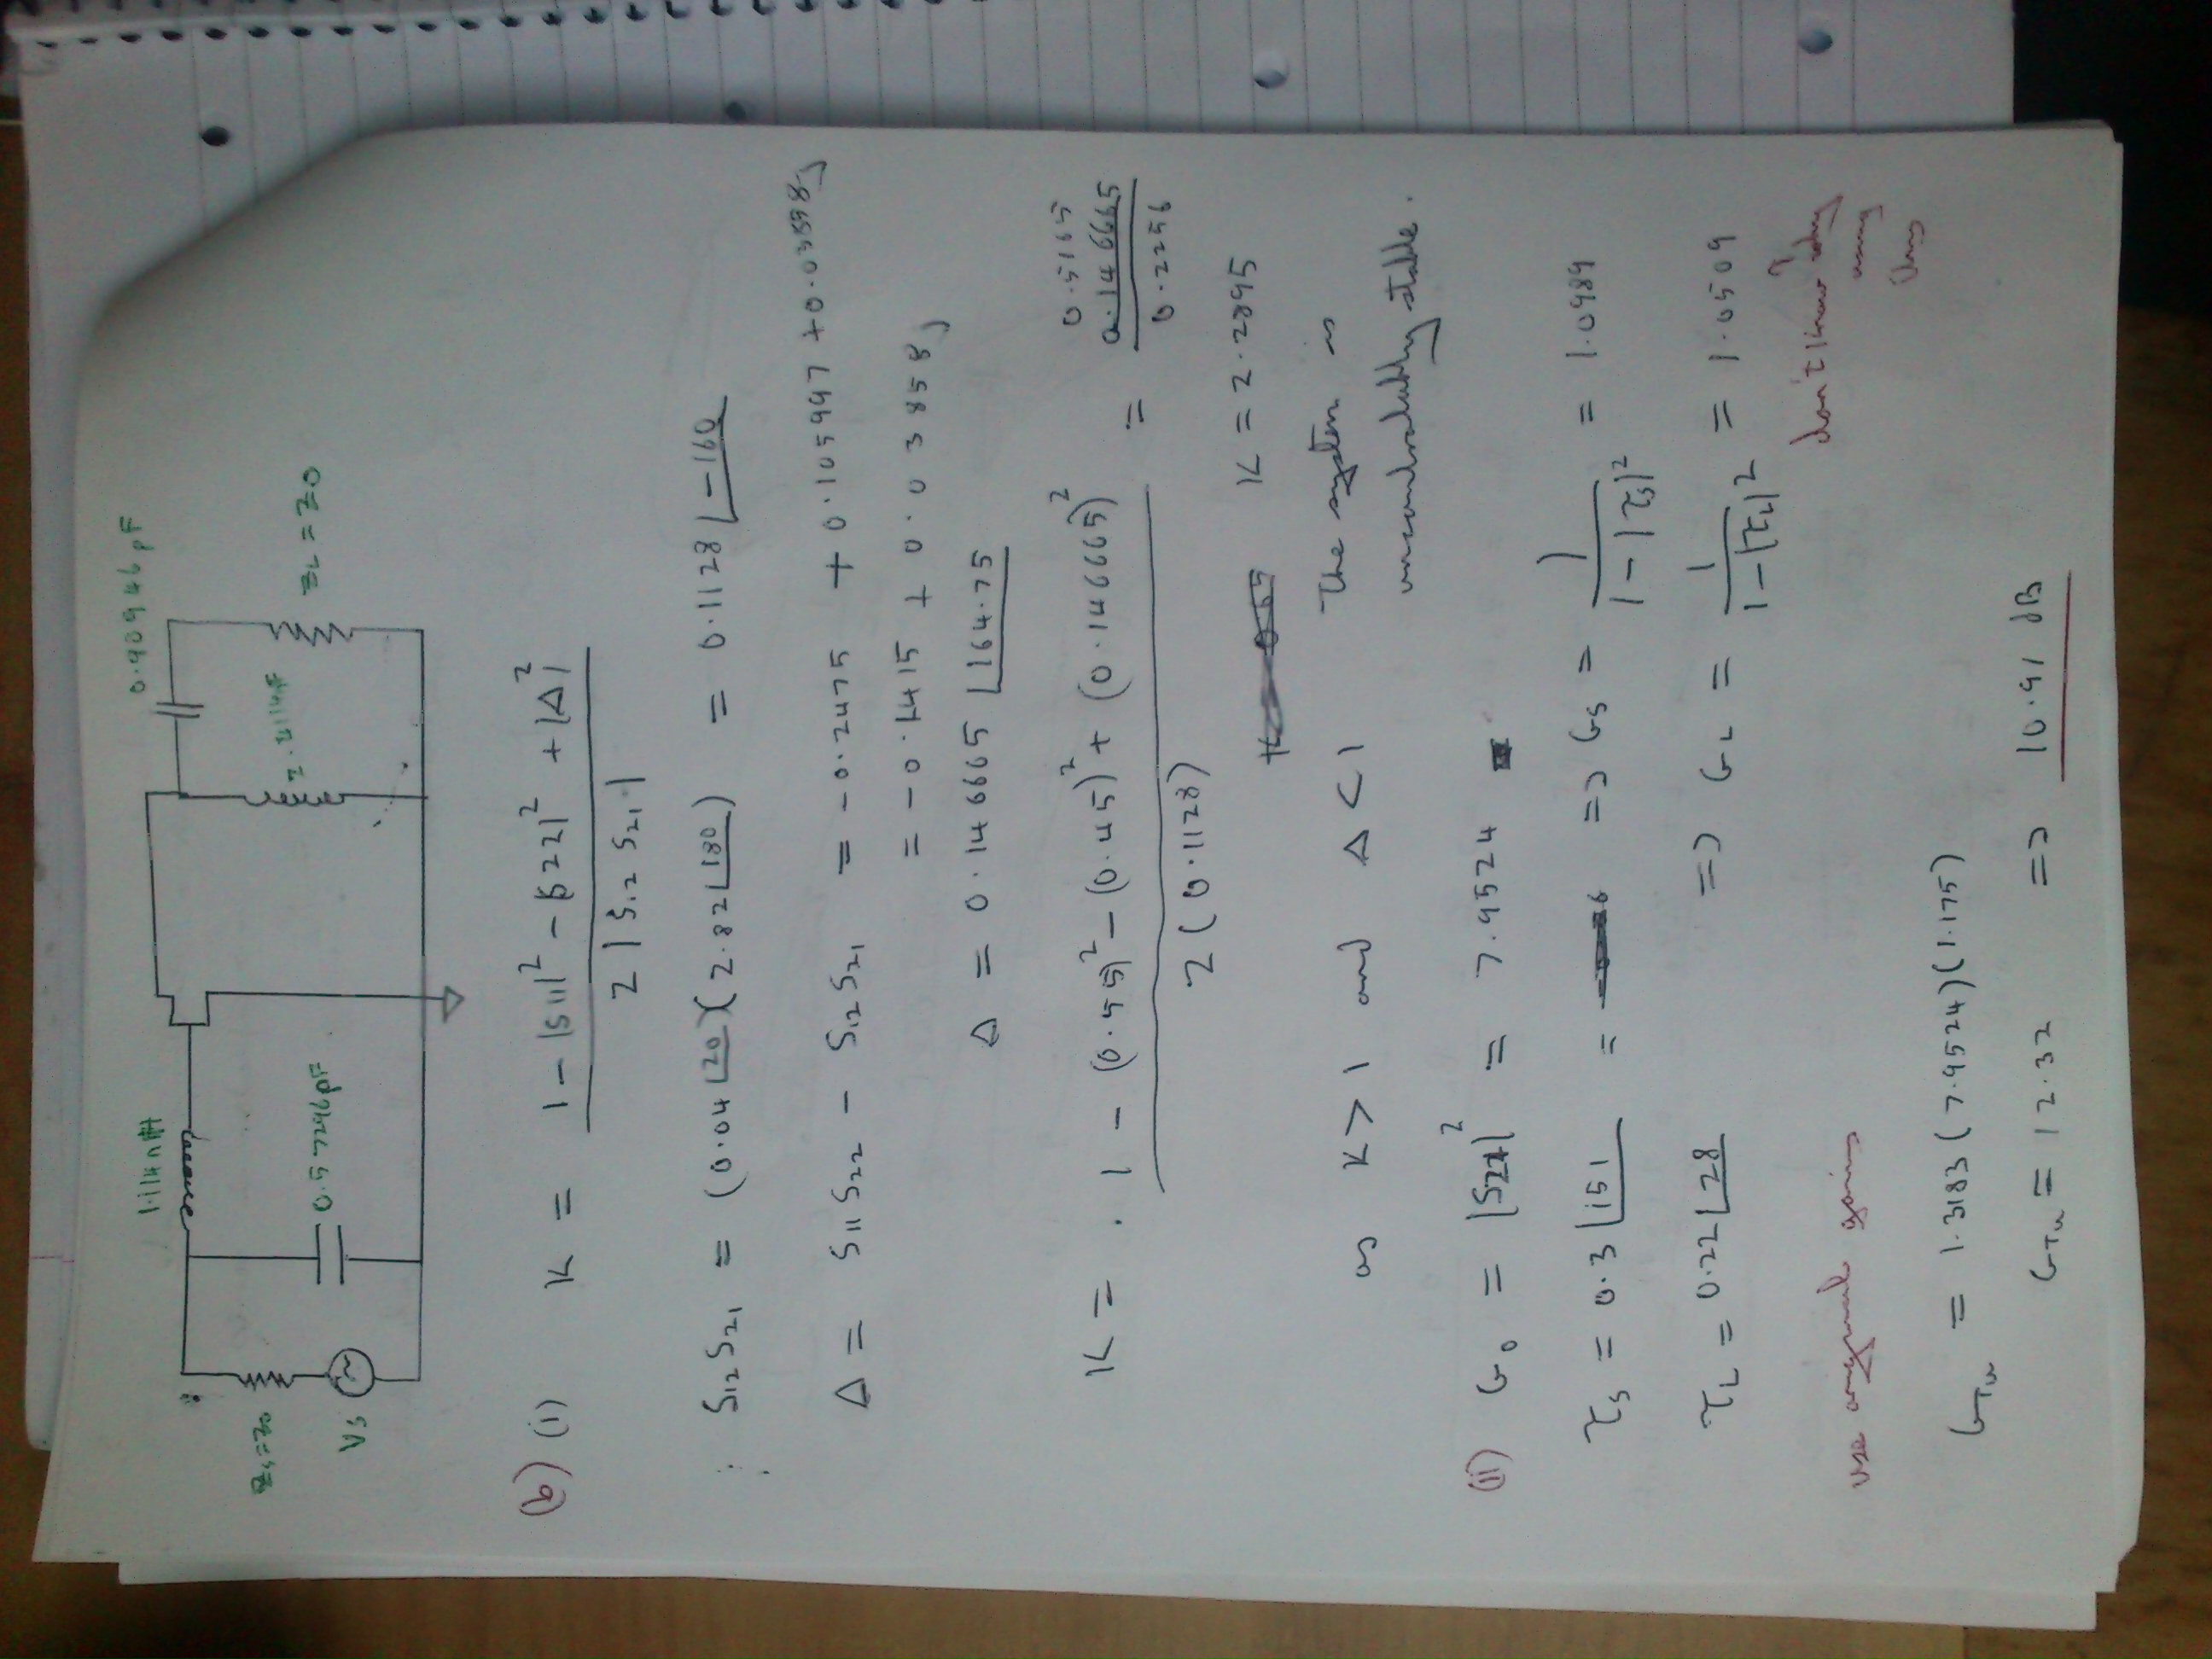 0.90946pF
1.114nH
2.4114nF
0.57246pF
Zs=Z0
Vs
ZL = Z0
(b) (i) K = 1 - |S11|² - |S22|² + |Δ|² / 2 |S12 S21|
∴ S12 S21 = (0.04∠20)(2.82∠180) = 0.1128∠-160
Δ = S11 S22 - S12 S21 = -0.2475 + 0.105997 + 0.03858j
= -0.1415 + 0.03858j
Δ = 0.146665∠164.75
K = 1 - (0.55)² - (0.45)² + (0.146665)² / 2(0.1128) = 0.5165 / 0.2256
K = 2.2895
as K > 1 and Δ < 1 The system is
unconditionally stable.
(ii) G0 = |S21|² = 7.9524
τs = 0.3∠151 = => Gs = 1 / 1 - |τs|² = 1.0989
τL = 0.22∠28 => GL = 1 / 1 - |τL|² = 1.0509
don't know why
using
this
use original gains
GTu = 1.3183 (7.9524)(1.175)
GTu = 12.32 => 10.91 dB